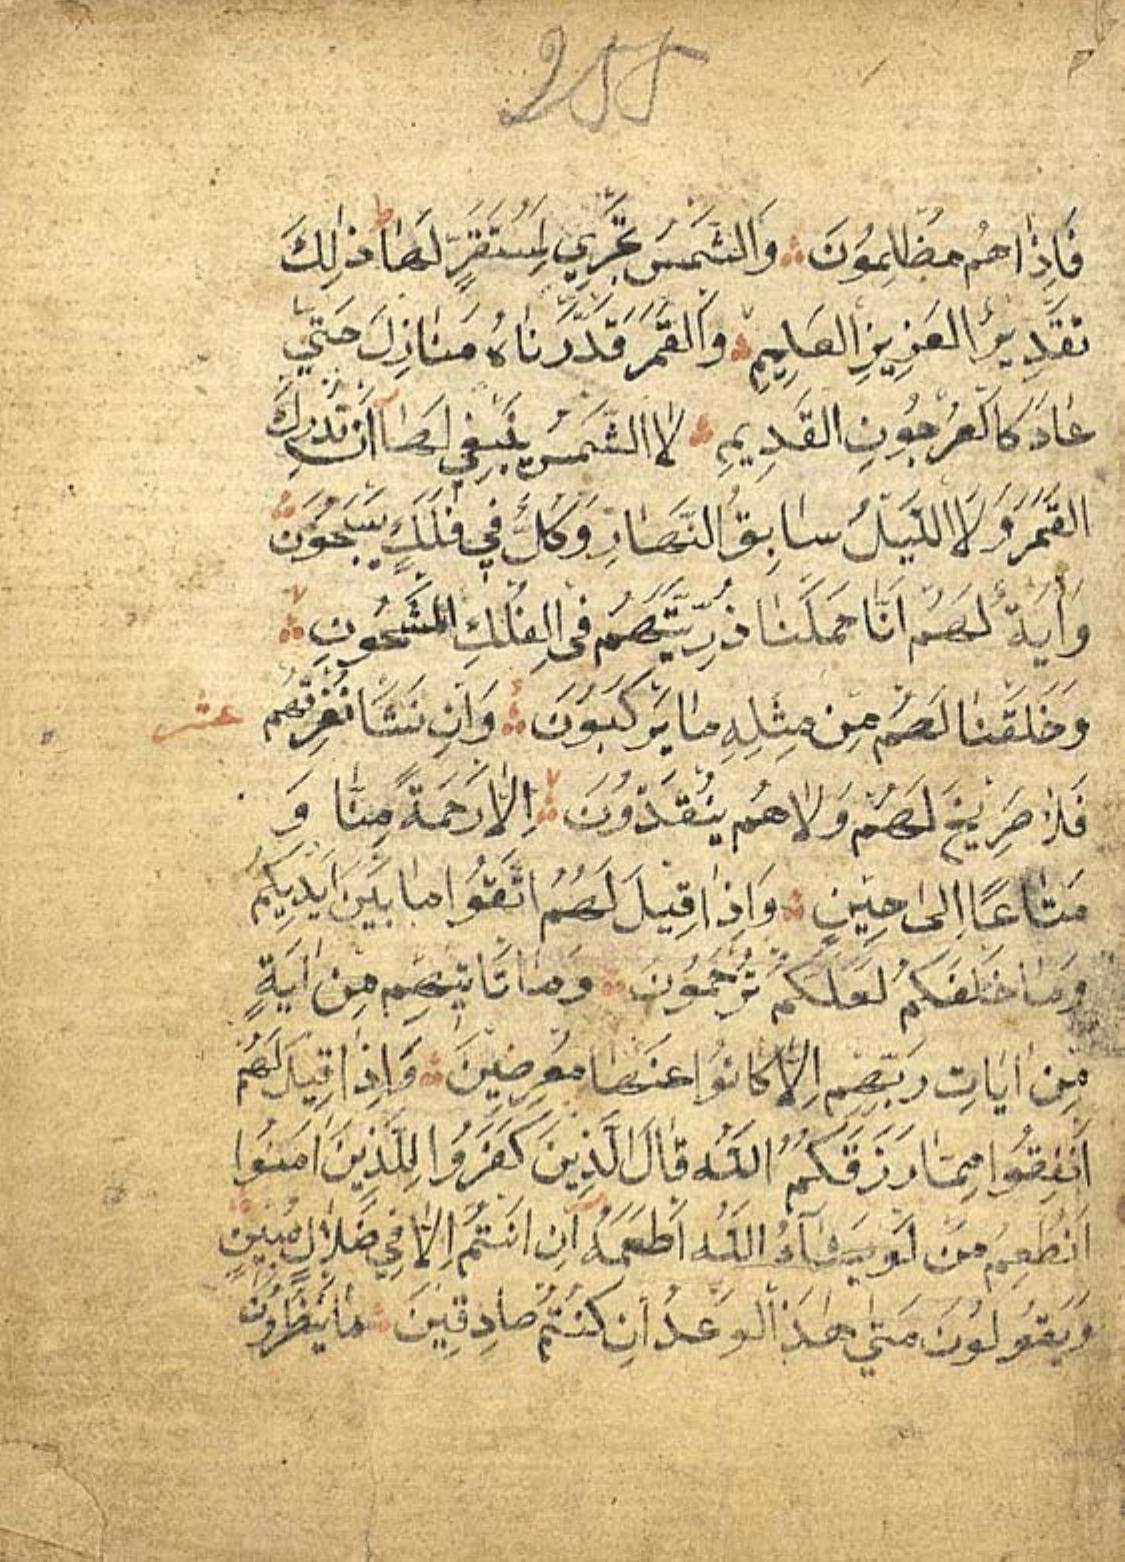 فَاِذَا هُم مُظْلِمُونَ وَالشَّمْسُ تَجْرِي لِمُسْتَقَرٍّ لَهَا ط ذٰلِكَ
تَقْدِيرُ الْعَزِيزِ الْعَلِيمِ وَالْقَمَرَ قَدَّرْنَاهُ مَنَازِلَ حَتّٰي
عَادَ كَالْعُرْجُونِ الْقَدِيمِ لَا الشَّمْسُ يَنْبَغِي لَهَا اَنْ تُدْرِكَ
الْقَمَرَ وَلَا اللَّيْلُ سَابِقُ النَّهَارِ وَكُلٌّ فِي فَلَكٍ يَسْبَحُونَ
وَاٰيَةٌ لَهُمْ اَنَّا حَمَلْنَا ذُرِّيَّتَهُمْ فِي الْفُلْكِ الْمَشْحُونِ
وَخَلَقْنَا لَهُمْ مِن مِثْلِهِ مَا يَرْكَبُونَ وَاِن نَشَا نُغْرِقْهُم عشر
فَلَا صَرِيخَ لَهُمْ وَلَا هُم يُنْقَذُونَ اِلَّا رَحْمَةً مِنَّا وَ
مَتَاعًا اِلٰى حِينٍ وَاِذَا قِيلَ لَهُمُ اتَّقُوا مَا بَيْنَ اَيْدِيكُمْ
وَمَا خَلْفَكُمْ لَعَلَّكُمْ تُرْحَمُونَ وَمَا تَاتِيهِم مِن اٰيَةٍ
مِن اٰيَاتِ رَبِّهِم اِلَّا كَانُوا عَنْهَا مُعْرِضِينَ وَاِذَا قِيلَ لَهُمْ
اَنْفِقُوا مِمَّا رَزَقَكُمُ اللّٰهُ قَالَ الَّذِينَ كَفَرُوا لِلَّذِينَ اٰمَنُوا
اَنُطْعِمُ مَنْ لَوْ يَشَاءُ اللّٰهُ اَطْعَمَهُ اِن اَنْتُمْ اِلَّا فِي ضَلَالٍ مُبِينٍ
وَيَقُولُونَ مَتٰي هٰذَا الْوَعْدُ اِن كُنْتُمْ صَادِقِينَ مَا يَنْظُرُونَ